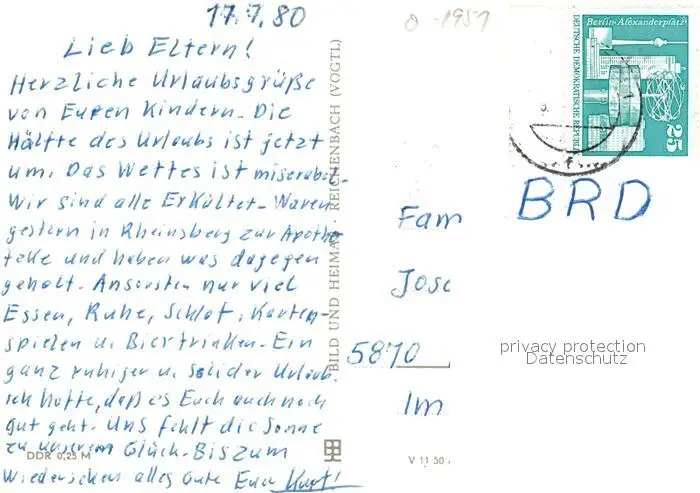 17.7.80
Lieb Eltern!
Herzliche Urlaubsgrüße
von Euren Kindern. Die
Hälfte des Urlaubs ist jetzt
um. Das Wettes ist miserabel.
Wir sind alle Erkältet. Waren
gestern in Rheinsberg zur Apothe
teke und haben was dagegen
geholt. Ansonsten nur viel
Essen, Ruhe, Schlaf, Karten-
spielen u. Biertrinken. Ein
ganz ruhiger u. solider Urlaub.
ich hoffe, daß es Euch auch noch
gut geht. Uns fehlt die Sonne
zu unserem Glück. Bis zum
Wiedersehen alles Gute Euer Kurt!
DDR 0,25 M
BILD UND HEIMAT REICHENBACH (VOGTL)
V 11 50
1951
Berlin-Alexanderplatz
DEUTSCHE DEMOKRATISCHE REPUBLIK
25
BRD
Fam
Jose
5870
Im
privacy protection
Datenschutz